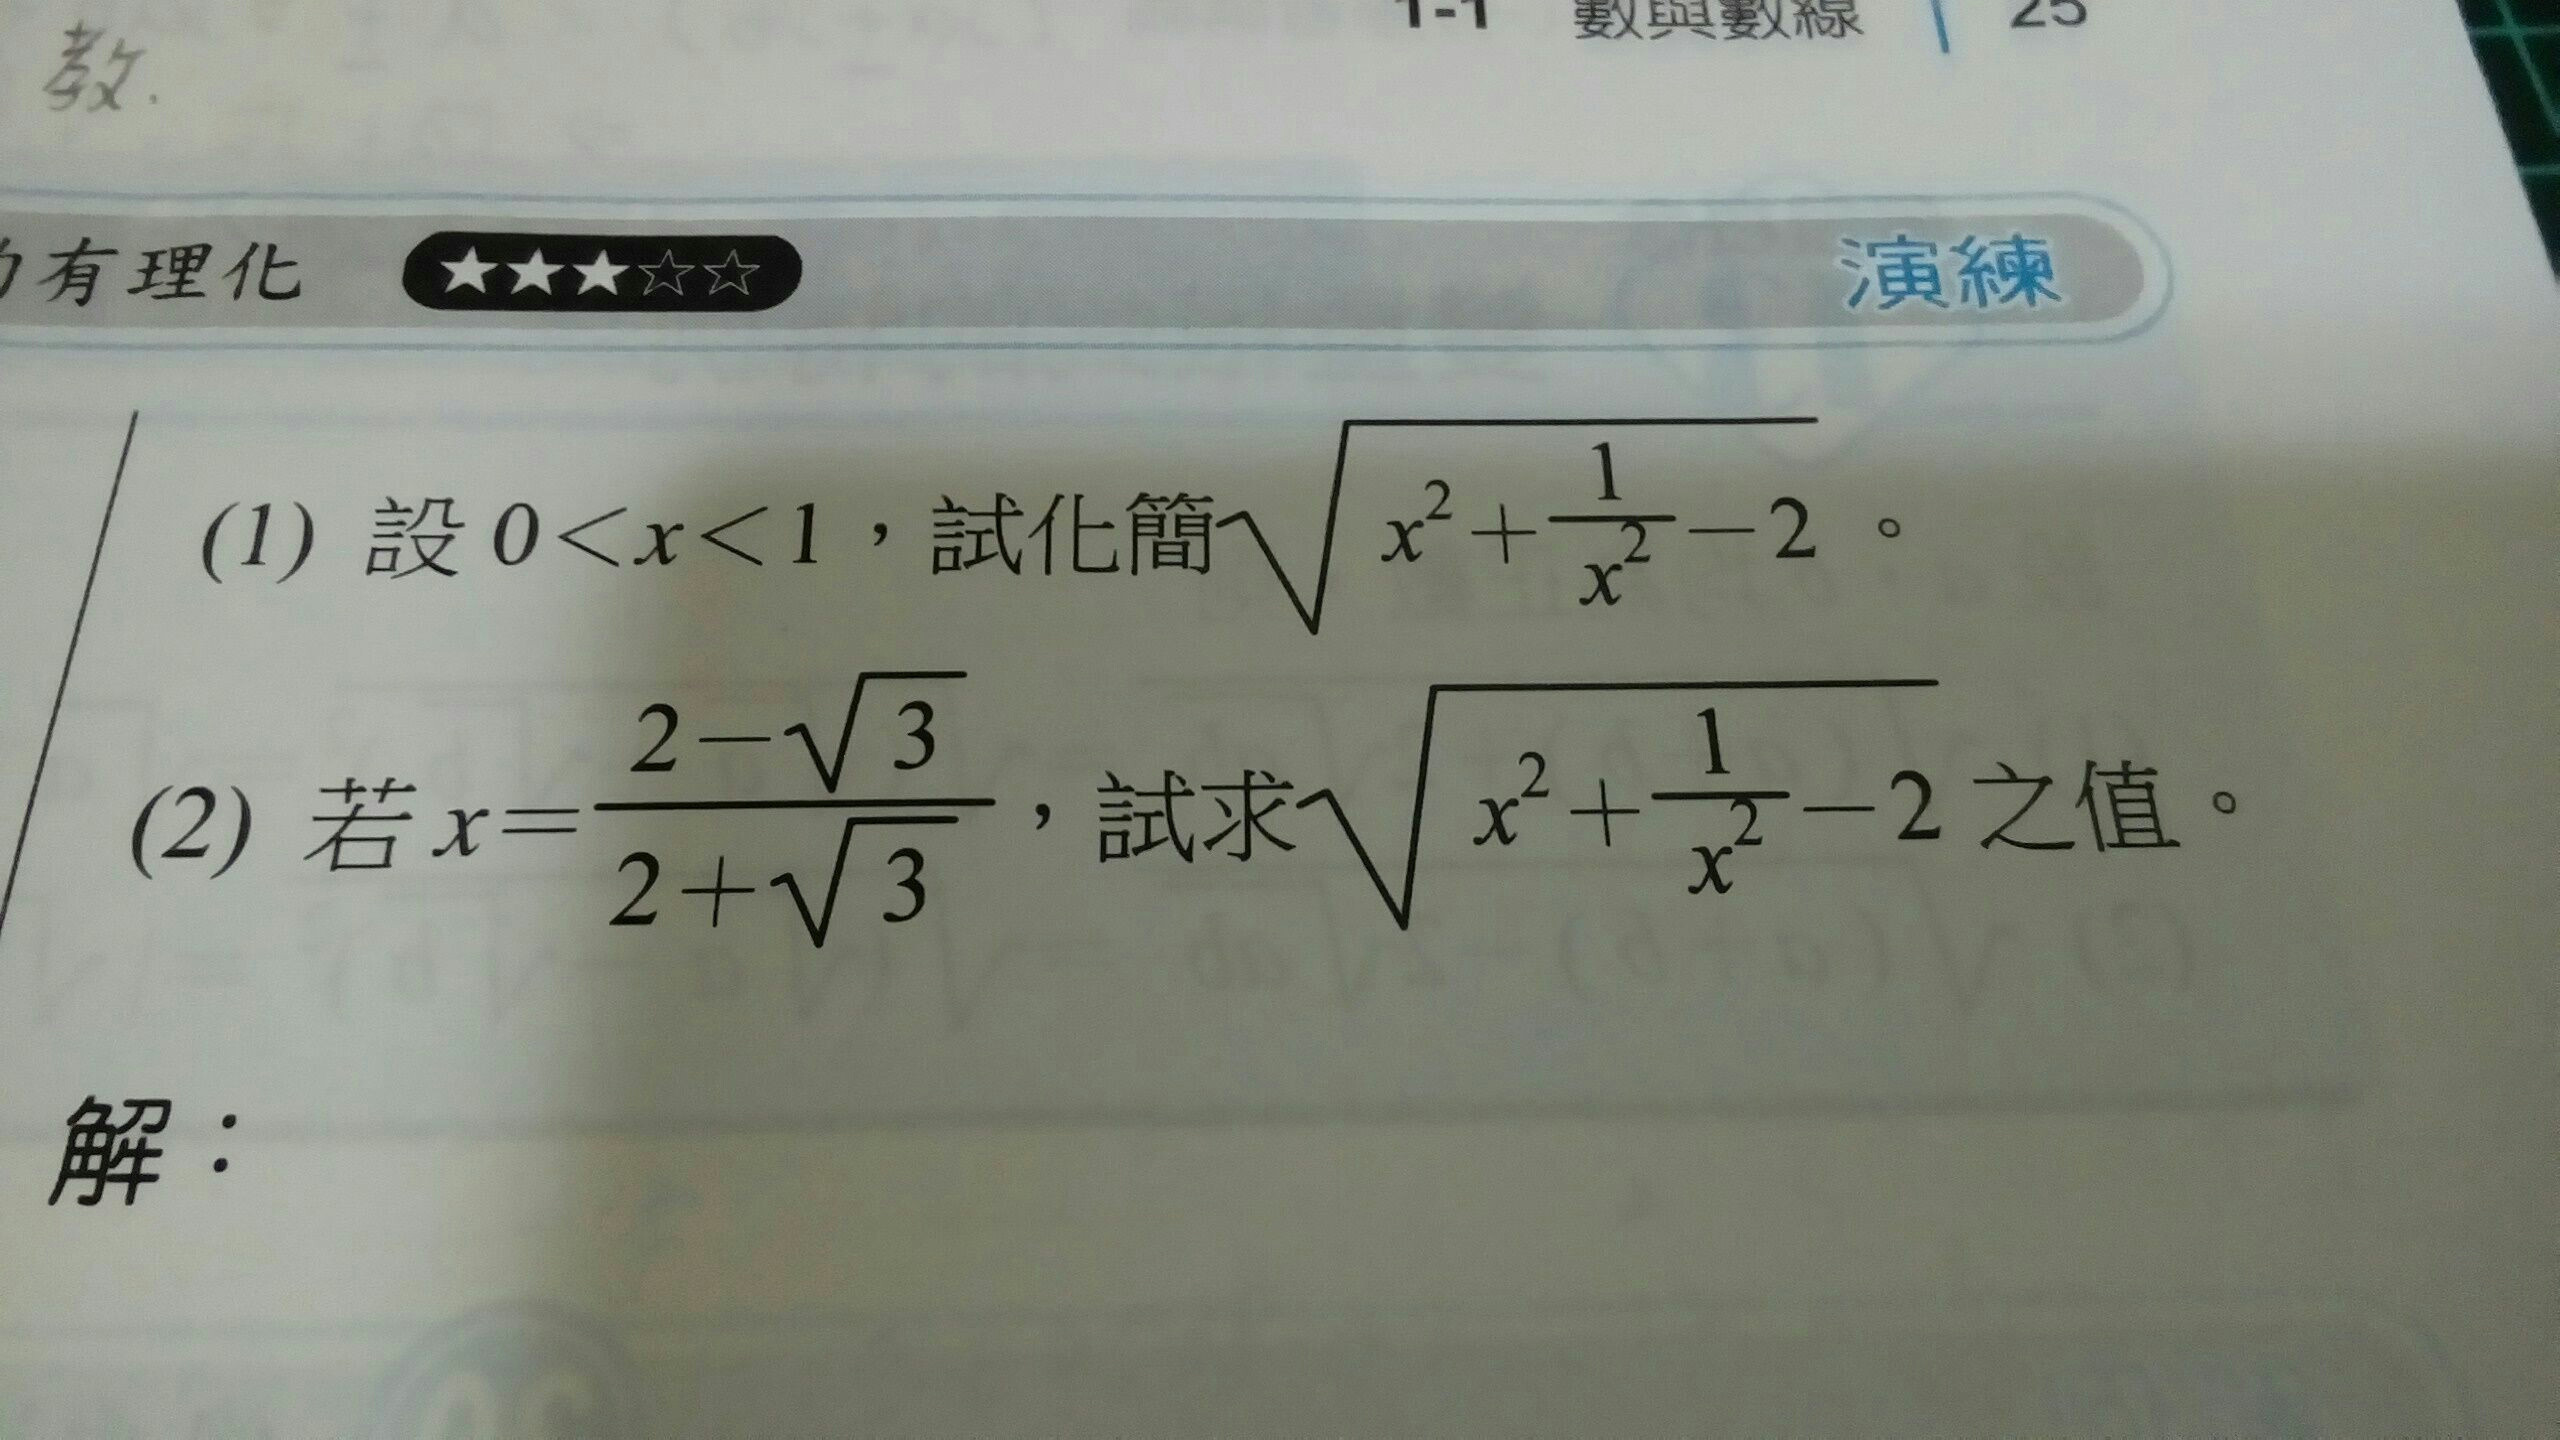 1-1 數與數線 25
教.
有理化 ★★★☆☆ 演練
(1) 設 0<x<1，試化簡√(x²+1/x²-2)。
(2) 若 x=(2-√3)/(2+√3)，試求√(x²+1/x²-2) 之值。
解：